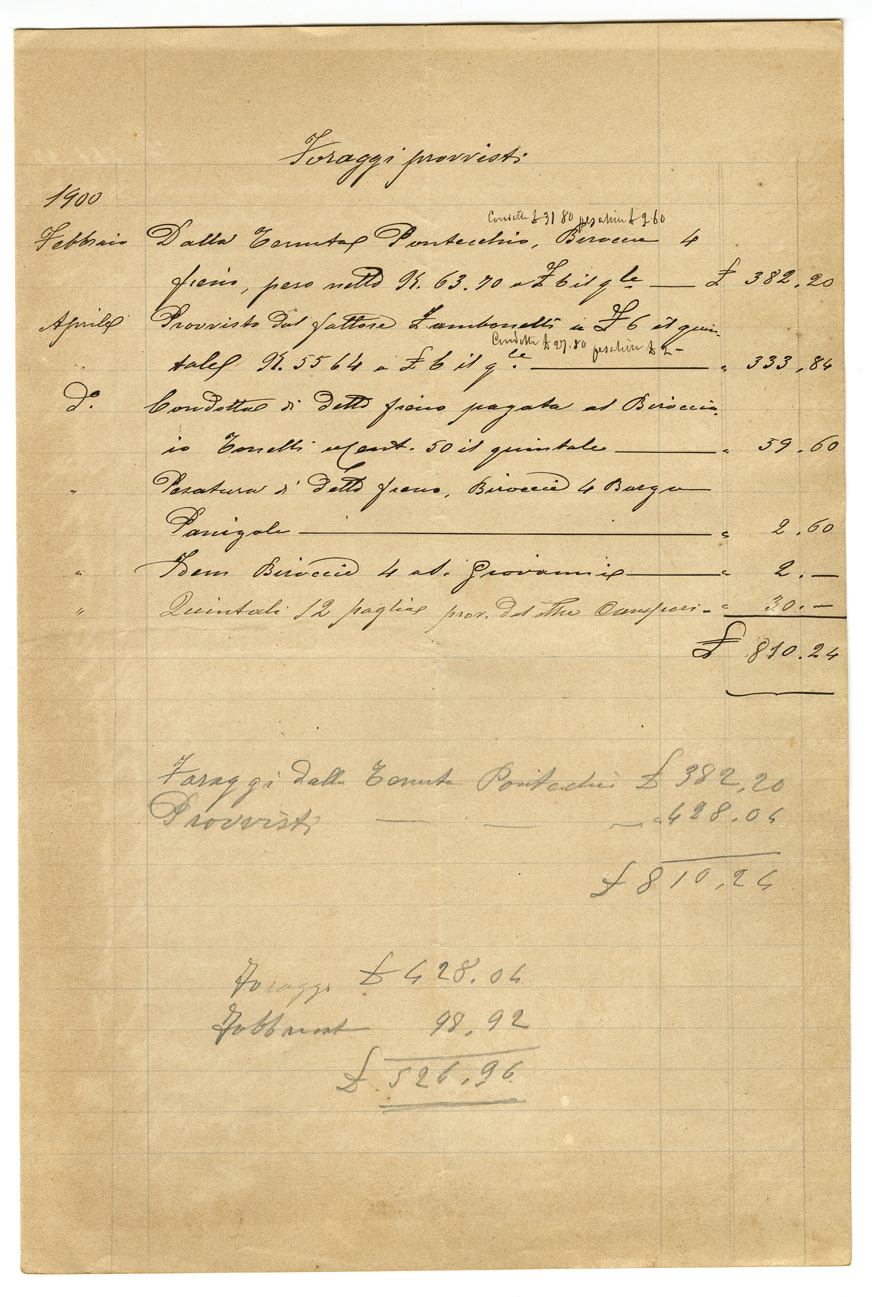 Foraggi provvisti
1900
Condotta £ 31 80 pesatura £ 2 60
Febbraio Dalla Tenuta Pontecchio, Biroccie 4
fieno, peso netto K. 63.70 a £ 6 il qle — £ 382,20
Aprile Provvisto dal fattore Zambonelli a £ 6 il quin-
Condotta £ 27.80 pesatura £ 2 –
tale K. 55 64 a £ 6 il qle — " 333,84
do. Condotta di detto fieno pagata al Biroccia-
io Tonelli a Cent. 50 il quintale — " 59.60
" Pesatura di detto fieno, Biroccie 4 Borgo
Panigale — " 2.60
" Idem Biroccie 4 a S. Giovanni — " 2.—
" Quintali 12 paglia prov. dal — " 30.—
£ 810.24
Foraggi dalla Tenuta Pontecchio £ 382,20
Provvisti — — " 428.04
£ 810,24
Foraggi £ 428.04
98,92
£ 526,96